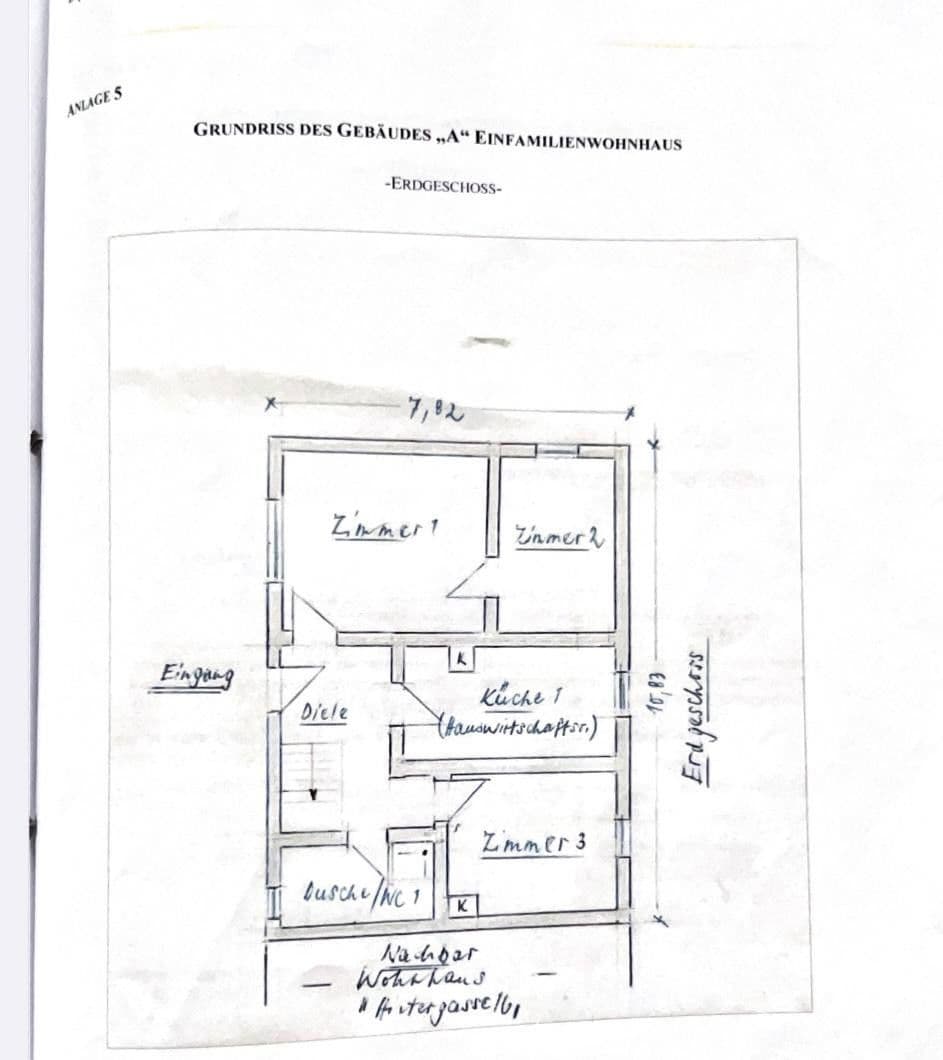 ANLAGE 5
GRUNDRISS DES GEBÄUDES „A“ EINFAMILIENWOHNHAUS
-ERDGESCHOSS-
7,82
Zimmer 1
Zimmer 2
Eingang
K
Küche 1
(Hauswirtschaftsr.)
Diele
10,83
Erdgeschoss
Zimmer 3
Dusche/WC 1
K
Nachbar
Wohnhaus